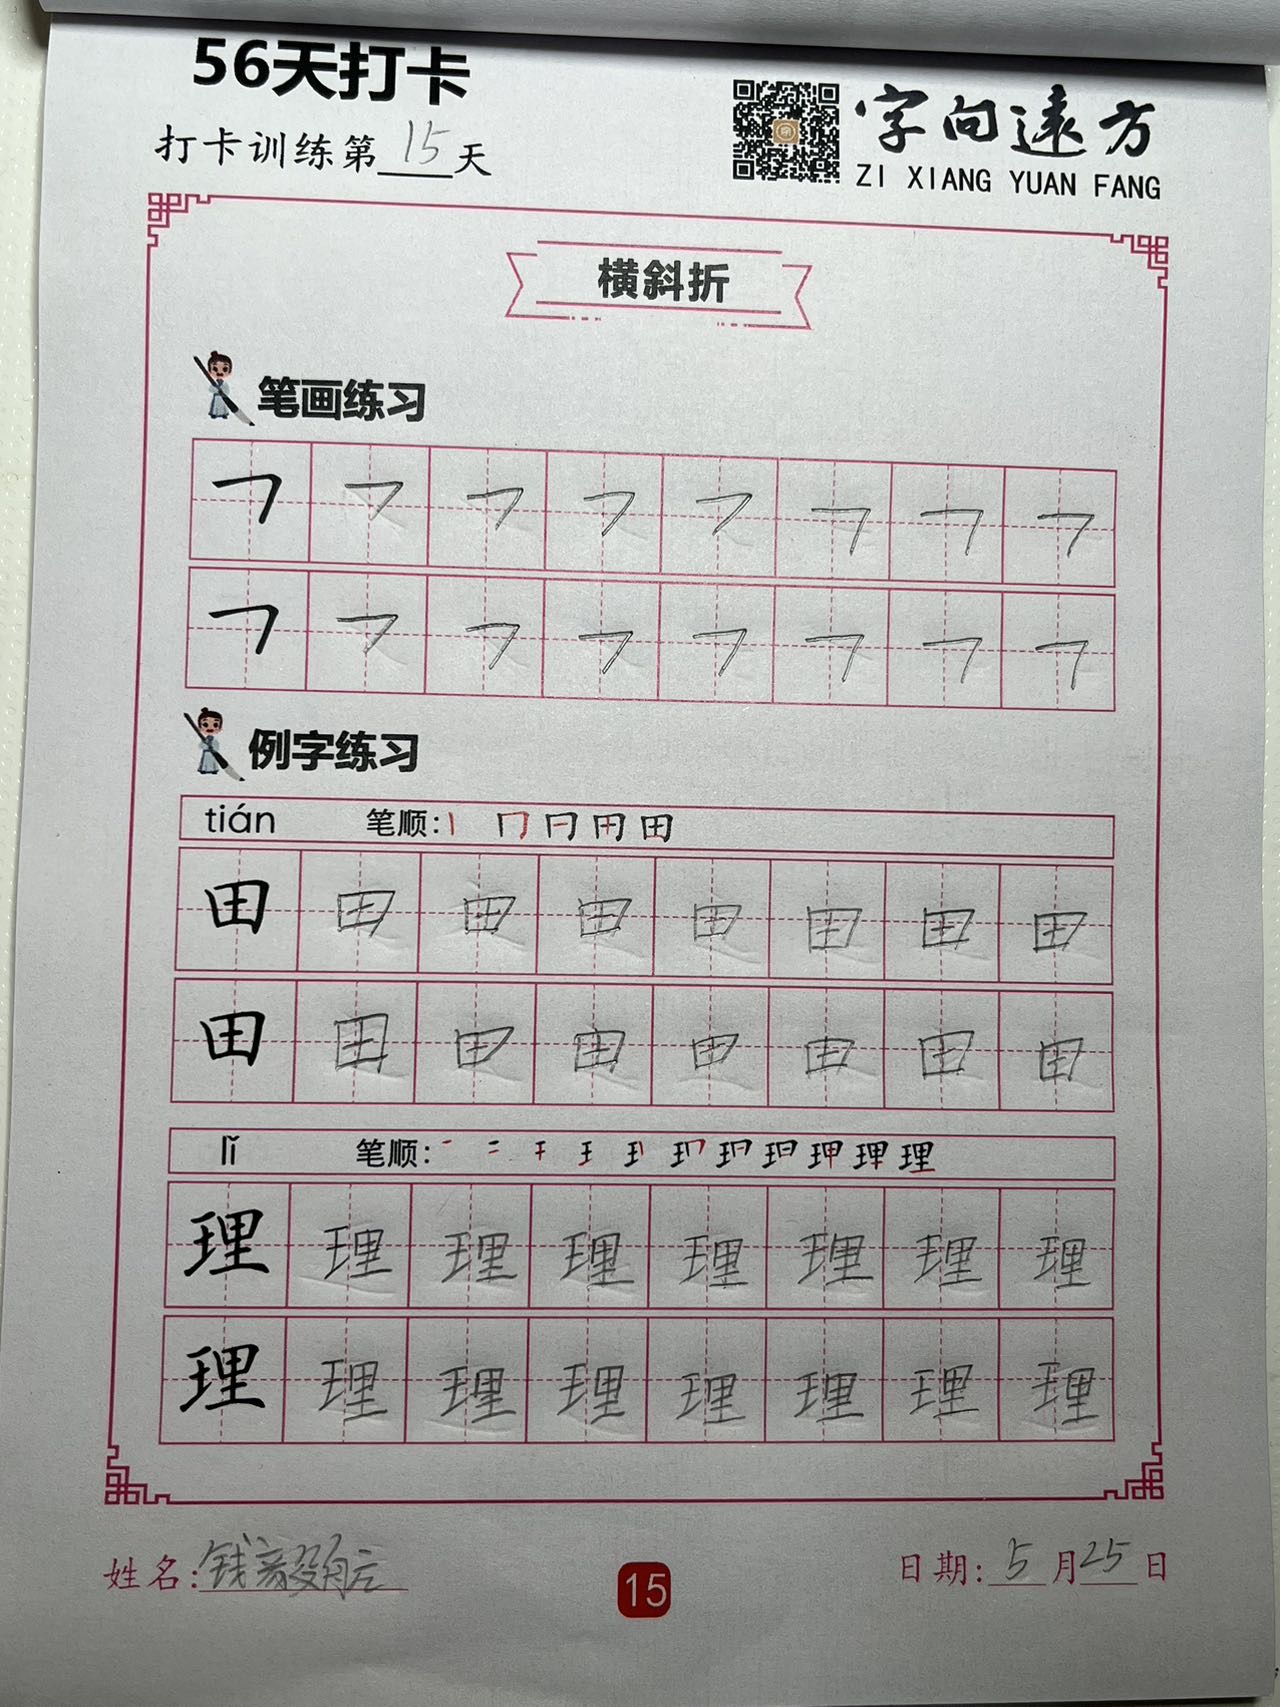 56天打卡
打卡训练第15天
字向远方
ZI XIANG YUAN FANG
横斜折
笔画练习
㇕ ㇕ ㇕ ㇕ ㇕ ㇕ ㇕ ㇕
㇕ ㇕ ㇕ ㇕ ㇕ ㇕ ㇕ ㇕
例字练习
tián 笔顺: 丨 冂 日 田 田
田 田 田 田 田 田 田 田
田 田 田 田 田 田 田 田
lǐ 笔顺:
理 理 理 理 理 理 理 理
理 理 理 理 理 理 理 理
姓名: 钱
15
日期: 5月25日